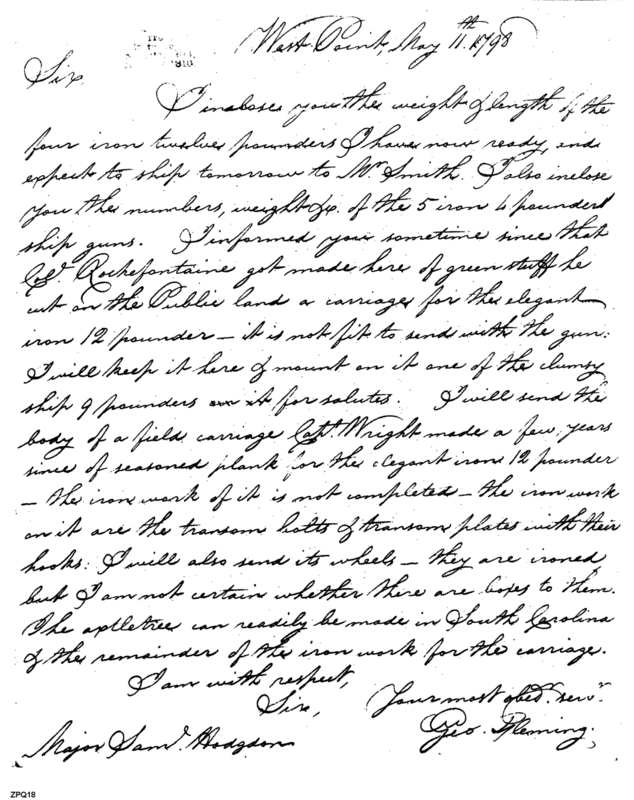 West Point, May 11th 1798
Sir
I inclose you the weight & length of the
four iron twelve pounders I have now ready, and
expect to ship tomorrow to Mr. Smith. I also inclose
you the numbers, weight &c. of the 5 iron 4 pounder
ship guns. I informed you sometime since that
Col. Rochefontaine got made here of green stuff he
cut on the Public land a carriage for the elegant
iron 12 pounder — it is not fit to send with the gun:
I will keep it here & mount on it one of the clumsy
ship 9 pounders on it for salutes. I will send the
body of a field carriage Capt. Wright made a few years
since of seasoned plank for the elegant iron 12 pounder
— the iron work of it is not completed — the iron work
on it are the transom bolts & transom plates with their
hooks. I will also send its wheels — they are ironed,
but I am not certain whether there are boxes to them.
The axtletree can readily be made in South Carolina
& the remainder of the iron work for the carriage.
I am with respect,
Sir, Your most obed. serv.
Geo. Fleming.
Major Saml. Hodgdon
ZPQ18